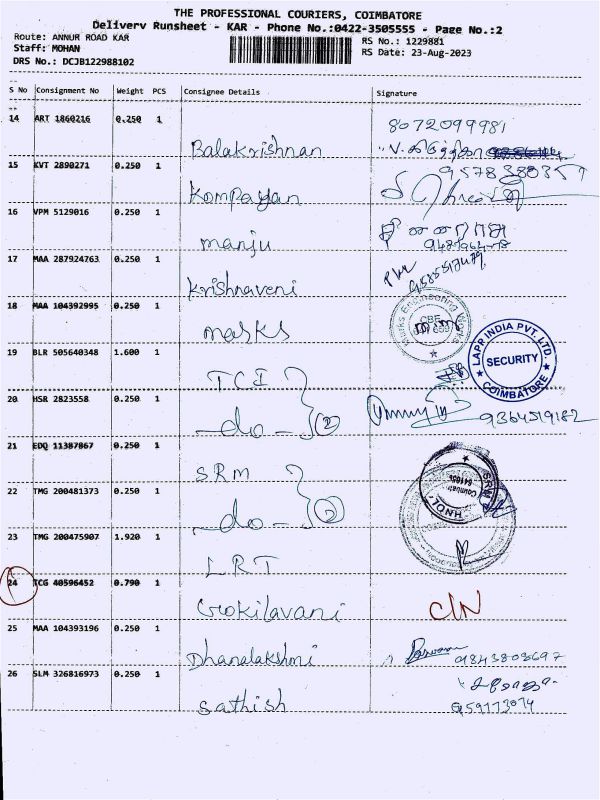 THE PROFESSIONAL COURIERS, COIMBATORE
Delivery Runsheet - KAR - Phone No.:0422-3505555 - Page No.:2
Route: ANNUR ROAD KAR
RS No.: 1229881
Staff: MOHAN
RS Date: 23-Aug-2023
DRS No.: DCJB122988102
S No Consignment No Weight PCS Consignee Details Signature
14 ART 1860216 0.250 1 Balakrishnan 8072099981
15 KVT 2890271 0.250 1
16 VPM 5129016 0.250 1 Manju
17 MAA 287924763 0.250 1 Krishnaveni
18 MAA 104392995 0.250 1 masks
19 BLR 505640348 1.600 1 TCI
LAPP INDIA PVT. LTD. SECURITY COIMBATORE
20 HSR 2823558 0.250 1 -do- (2) 9364519182
21 EDQ 11387867 0.250 1 SRM
22 TMG 200481373 0.250 1 -do- (2)
23 TMG 200475907 1.920 1 LRT
24 TCG 40596452 0.790 1 Gokilavani C/N
25 MAA 104393196 0.250 1 Dhanalakshmi 9843803697
26 SLM 326816973 0.250 1 Sathish